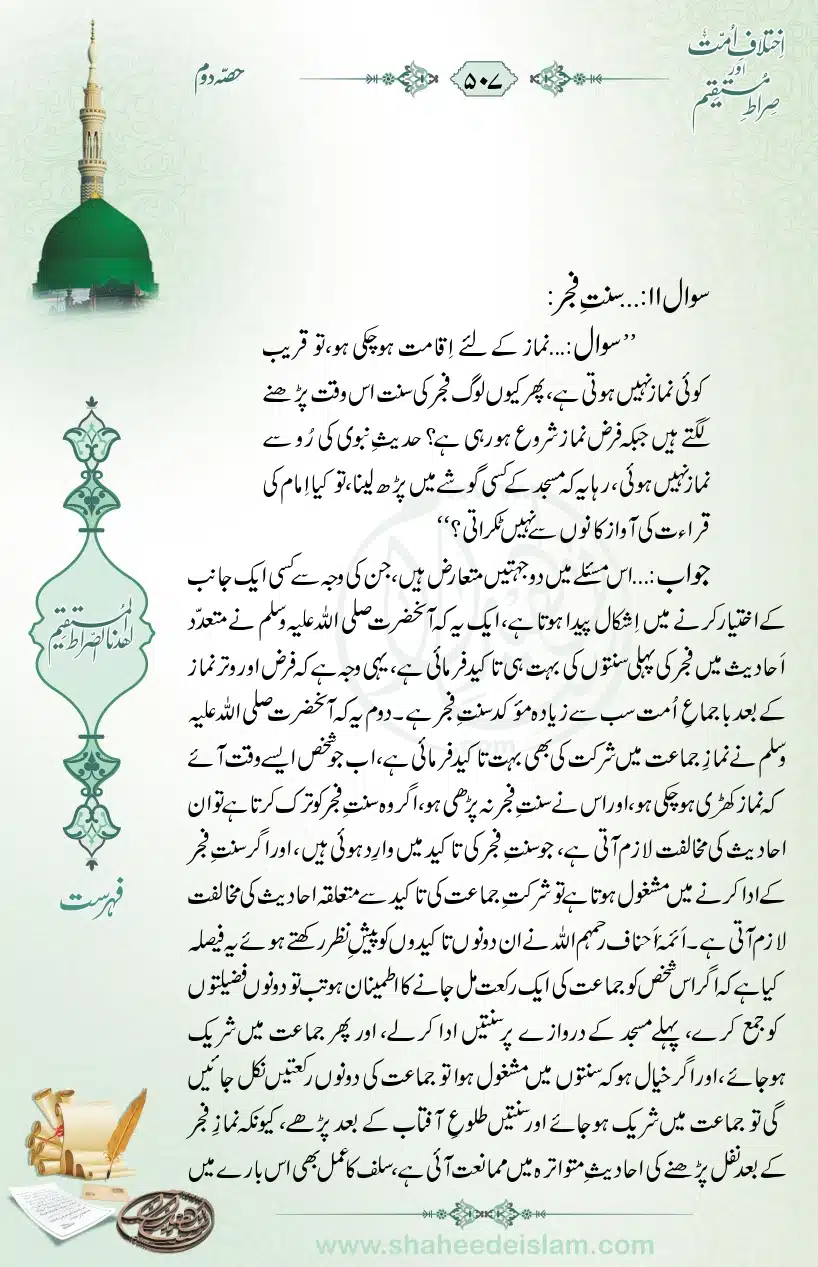 اِختلافِ اُمّت
اور
صراطِ مستقیم
۵۰۷
حصّہ دوم
سوال ۱۱:...سنتِ فجر:
’’سوال:...نماز کے لئے اِقامت ہوچکی ہو، تو قریب
کوئی نماز نہیں ہوتی ہے، پھر کیوں لوگ فجر کی سنت اس وقت پڑھنے
لگتے ہیں جبکہ فرض نماز شروع ہو رہی ہے؟ حدیثِ نبوی کی رُو سے
نماز نہیں ہوئی، رہا یہ کہ مسجد کے کسی گوشے میں پڑھ لینا، تو کیا اِمام کی
قراءت کی آواز کانوں سے نہیں ٹکراتی؟‘‘
جواب:...اس مسئلے میں دو جہتیں متعارض ہیں، جن کی وجہ سے کسی ایک جانب
کے اختیار کرنے میں اِشکال پیدا ہوتا ہے، ایک یہ کہ آنحضرت صلی اللہ علیہ وسلم نے متعدّد
اَحادیث میں فجر کی پہلی سنتوں کی بہت ہی تاکید فرمائی ہے، یہی وجہ ہے کہ فرض اور وتر نماز
کے بعد باجماعِ اُمت سب سے زیادہ مؤکد سنتِ فجر ہے۔ دوم یہ کہ آنحضرت صلی اللہ علیہ
وسلم نے نمازِ جماعت میں شرکت کی بھی بہت تاکید فرمائی ہے، اب جو شخص ایسے وقت آئے
کہ نماز کھڑی ہوچکی ہو، اور اس نے سنتِ فجر نہ پڑھی ہو، اگر وہ سنتِ فجر کو ترک کرتا ہے تو ان
احادیث کی مخالفت لازم آتی ہے، جو سنتِ فجر کی تاکید میں وارِد ہوئی ہیں، اور اگر سنتِ فجر
کے ادا کرنے میں مشغول ہوتا ہے تو شرکتِ جماعت کی تاکید سے متعلقہ احادیث کی مخالفت
لازم آتی ہے۔ اَئمہ اَحناف رحمہم اللہ نے ان دونوں تاکیدوں کو پیشِ نظر رکھتے ہوئے یہ فیصلہ
کیا ہے کہ اگر اس شخص کو جماعت کی ایک رکعت مل جانے کا اطمینان ہو تب تو دونوں فضیلتوں
کو جمع کرے، پہلے مسجد کے دروازے پر سنتیں ادا کرلے، اور پھر جماعت میں شریک
ہوجائے، اور اگر خیال ہو کہ سنتوں میں مشغول ہوا تو جماعت کی دونوں رکعتیں نکل جائیں
گی تو جماعت میں شریک ہوجائے اور سنتیں طلوعِ آفتاب کے بعد پڑھے، کیونکہ نمازِ فجر
کے بعد نفل پڑھنے کی احادیثِ متواترہ میں ممانعت آئی ہے، سلف کا عمل بھی اس بارے میں
اھدنا الصراط المستقیم
فہرست
www.shaheedeislam.com